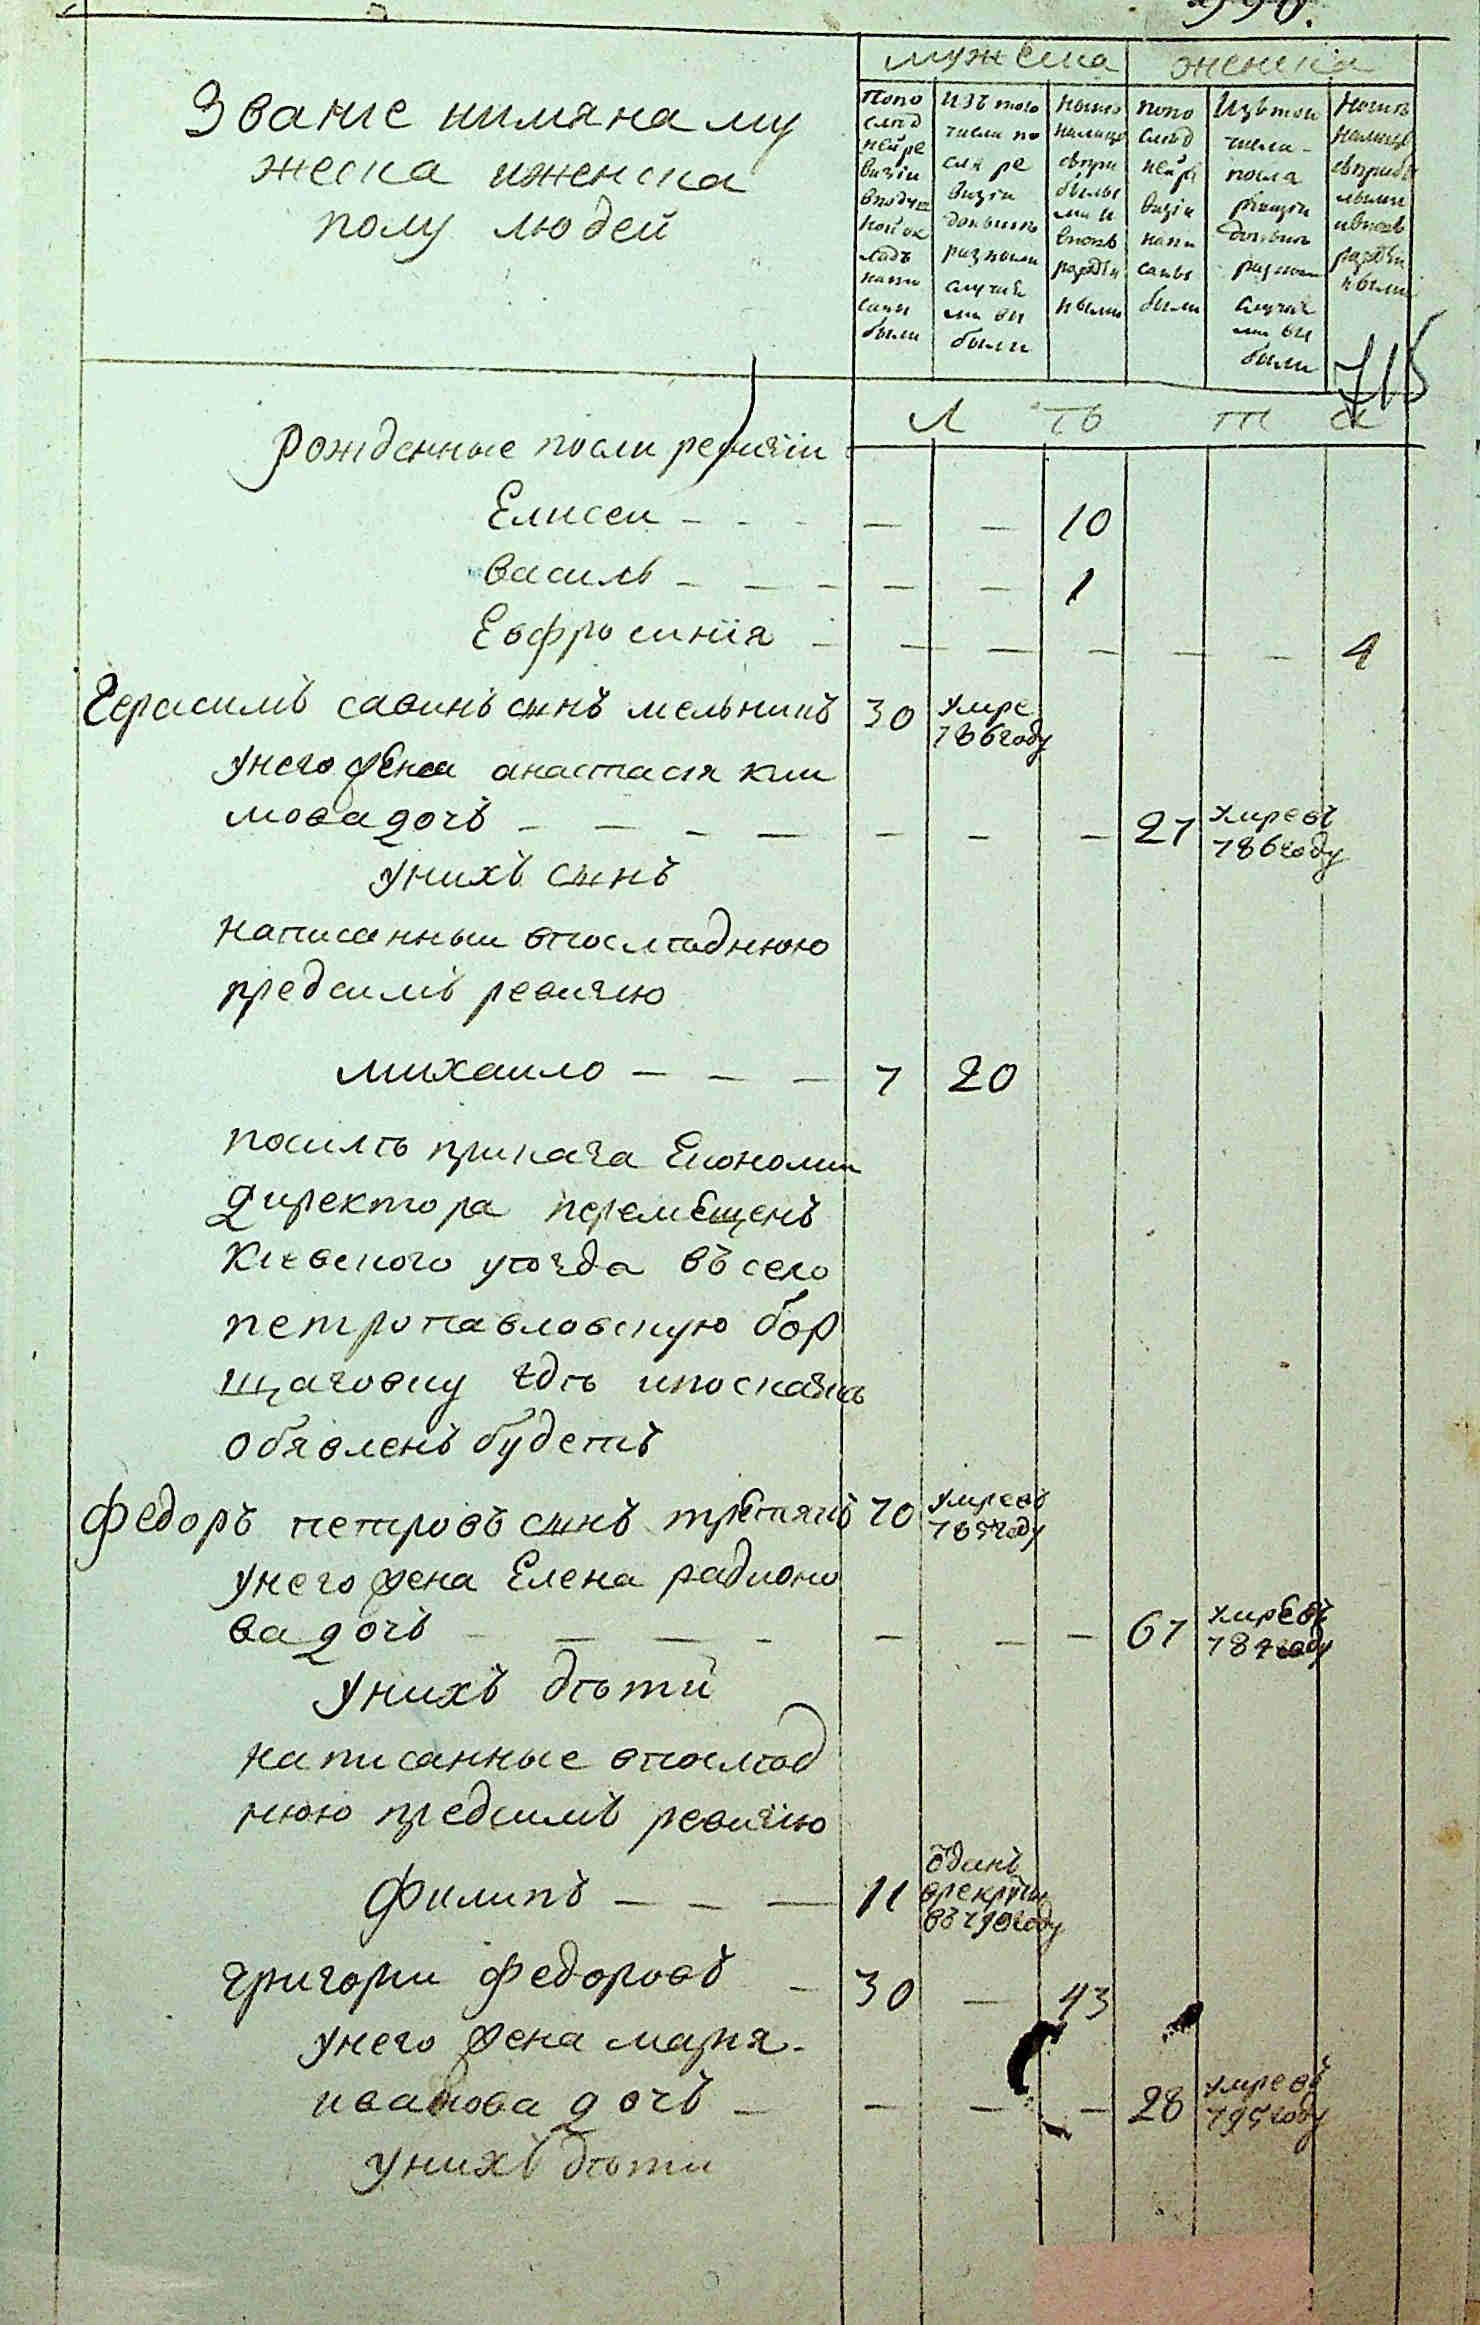 990.
мужеска женска
Званіе иимяна му
жеска иженска
полу людей
попо
след
ней ре
визіи
вподуш
ной ок
ладъ
напи
саны
были
изъ того
числа по
сля ре
визіи
доныне
разными
случая
ми вы
были
ныне
налицо
сприбы
лыми
вновь
рожден
ными
попо
след
ней ре
визіи
напи
саны
были
Изътого
числа
после
ревизіи
доныне
разными
случая
ми вы
были
Ныне
налицо
сприбы
лыми
ивновь
рожден
ными
715
л ѣ т а
рожденные посли ревизіи
Елисеи – – – – – 10
василь – – – – – 1
Евфросинія – – – – – – 4
Герасимъ савинъ сынъ мельникъ 30 умре
786году
унего жена анастасія кли
мова дочъ – – – – – – – 27 умре въ
786году
унихъ сынъ
написанныи впослѣднюю
предсимъ ревизию
михаило – – – 7 20
посилѣ приказа Економии
директора перемещенъ
Киевского уѣзда въ село
петропавловскую бор
щаговку гдѣ ипосказкѣ
обявленъ будетъ
Федоръ петровъ сынъ третякъ 70 умре въ
785году
унего жена Елена радионо
ва дочъ – – – – – – – 67 умре въ
784году
унихъ дѣти
написанные впослѣд
нюю предсимъ ревизию
Филипъ – – – 11 оданъ
врекруты
въ790году
григори федоровъ – 30 – 43
унего жена маря
иванова дочъ – – – – 28 умре въ
795году
унихъ дѣти